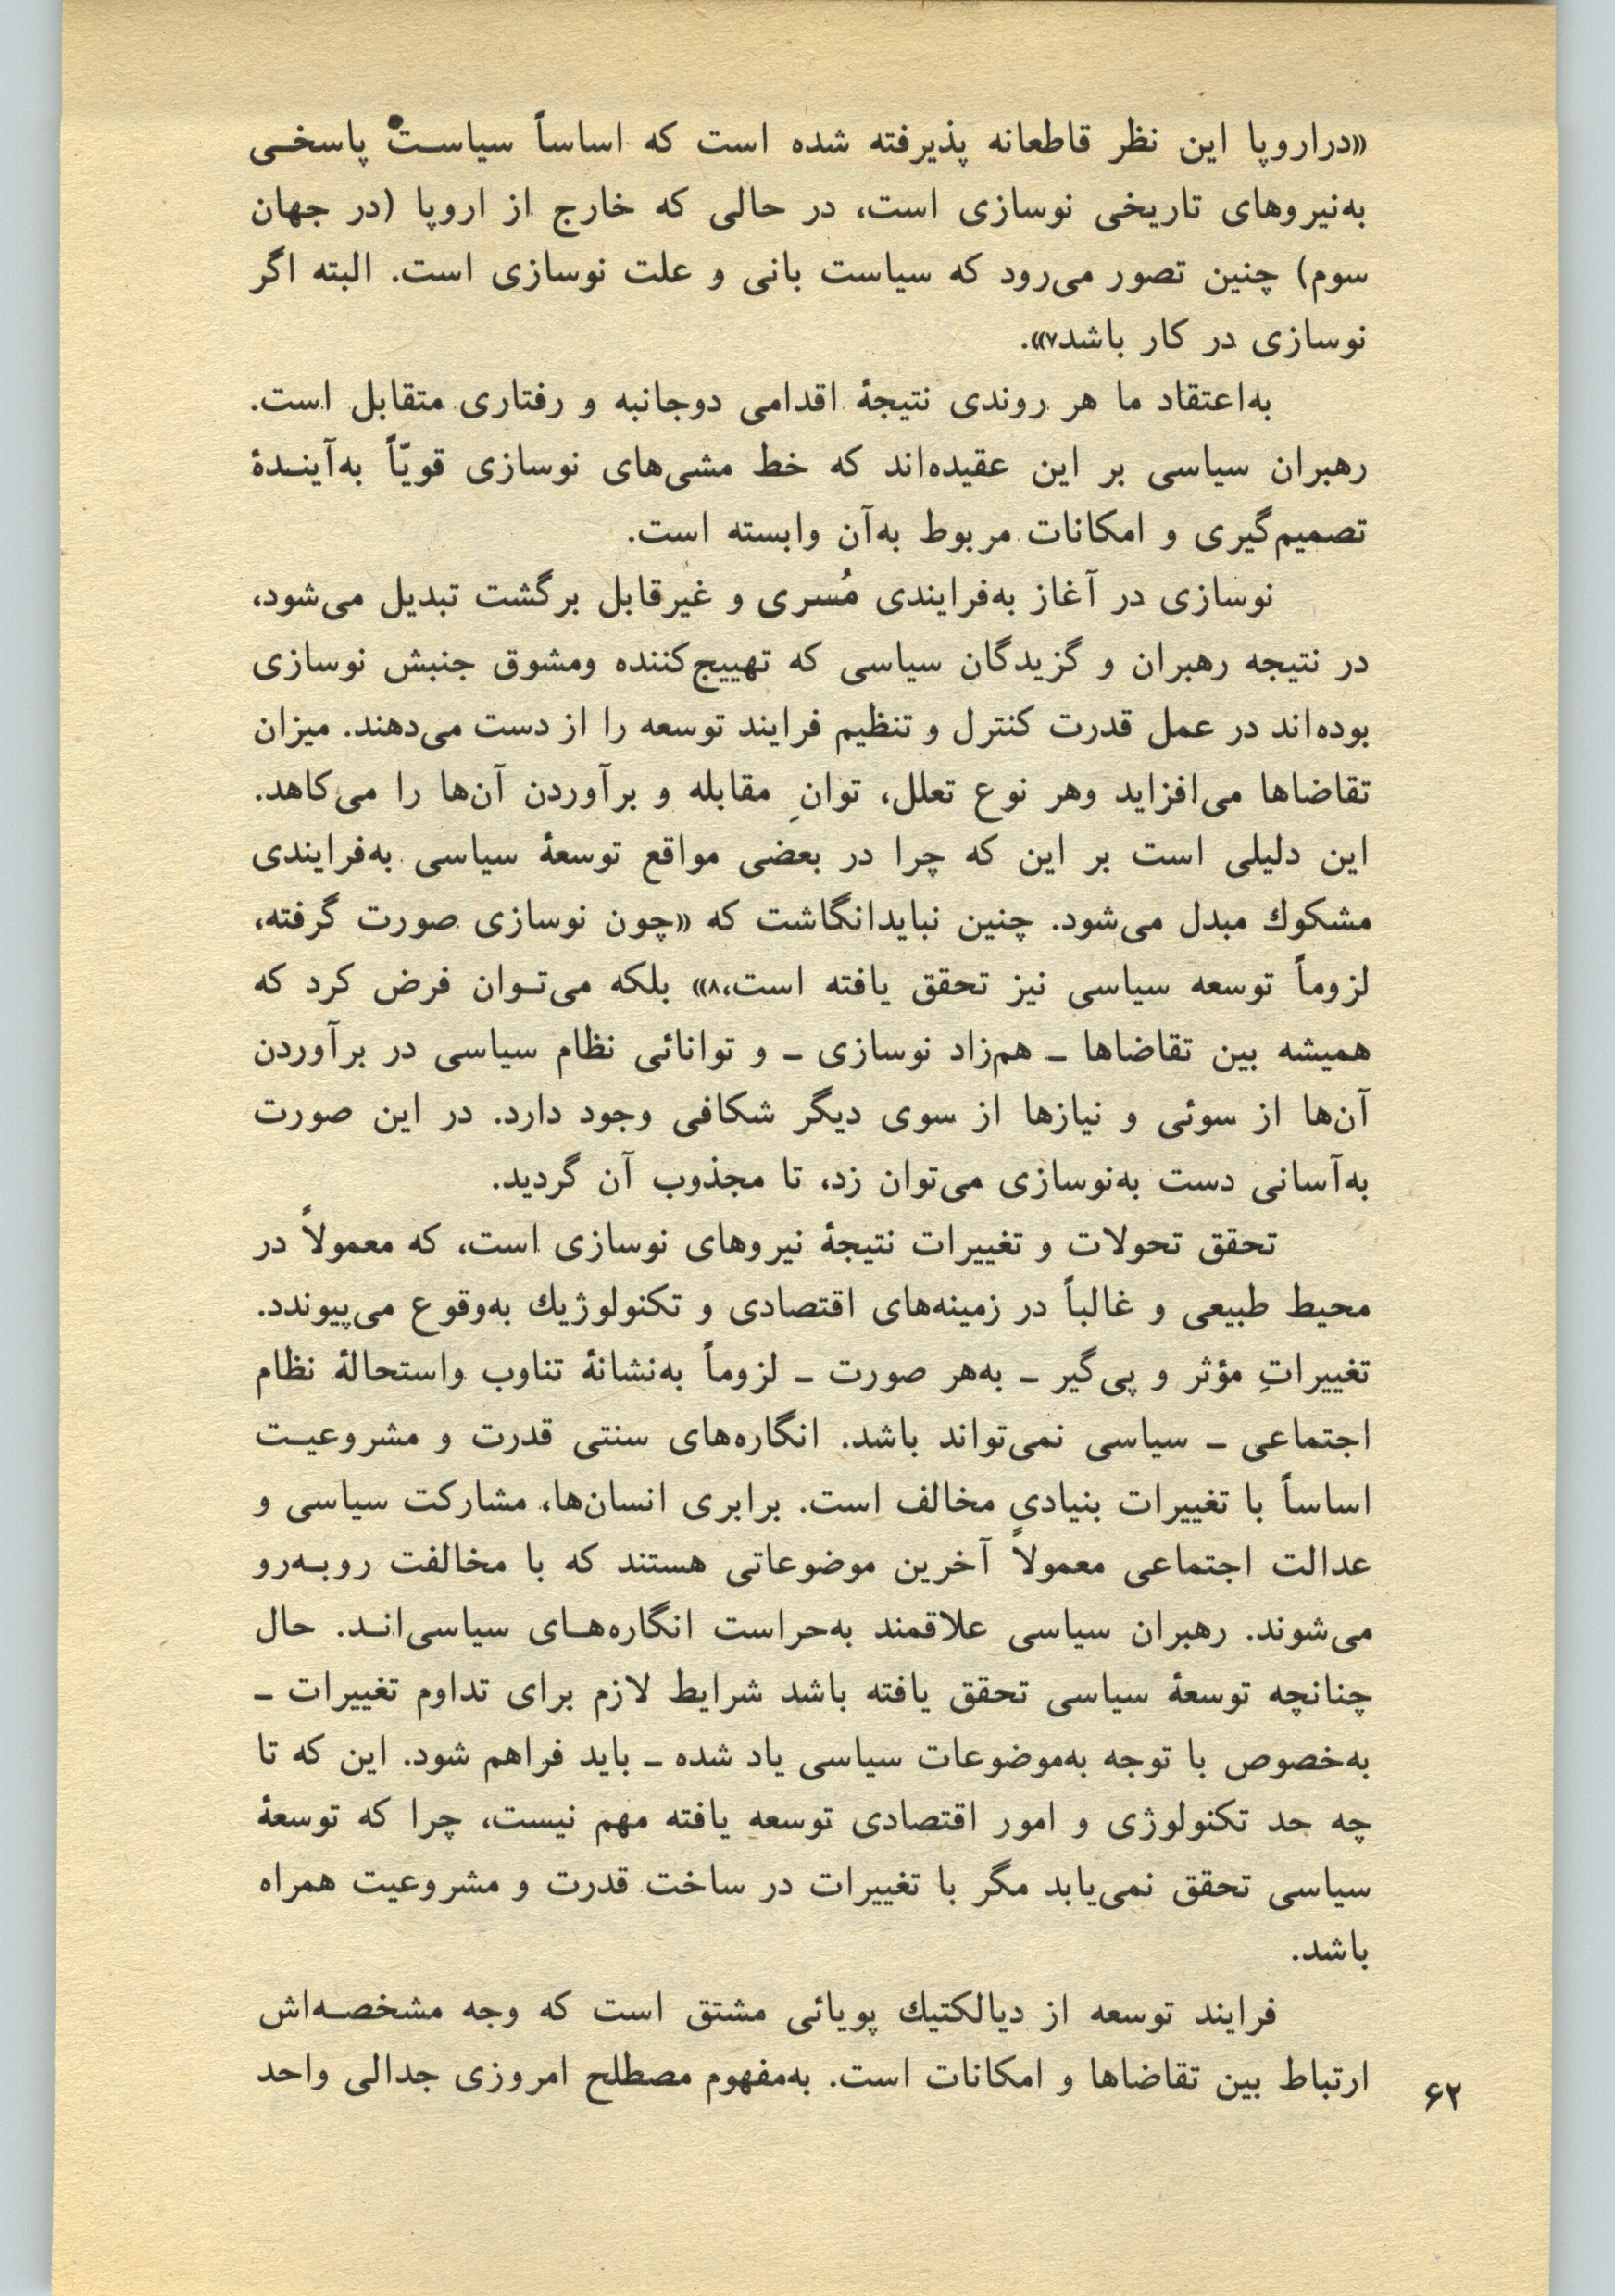 «دراروپا این نظر قاطعانه پذیرفته شده است که اساساً سیاست پاسخی
به‌نیروهای تاریخی نوسازی است، در حالی که خارج از اروپا (در جهان
سوم) چنین تصور می‌رود که سیاست بانی و علت نوسازی است. البته اگر
نوسازی در کار باشد۷».
به‌اعتقاد ما هر روندی نتیجهٔ اقدامی دوجانبه و رفتاری متقابل است.
رهبران سیاسی بر این عقیده‌اند که خط مشی‌های نوسازی قویّاً به‌آیندهٔ
تصمیم‌گیری و امکانات مربوط به‌آن وابسته است.
نوسازی در آغاز به‌فرایندی مُسری و غیرقابل برگشت تبدیل می‌شود،
در نتیجه رهبران و گزیدگان سیاسی که تهییج‌کننده ومشوق جنبش نوسازی
بوده‌اند در عمل قدرت کنترل و تنظیم فرایند توسعه را از دست می‌دهند. میزان
تقاضاها می‌افزاید وهر نوع تعلل، توانِ مقابله و برآوردن آن‌ها را می‌کاهد.
این دلیلی است بر این که چرا در بعضی مواقع توسعهٔ سیاسی به‌فرایندی
مشکوك مبدل می‌شود. چنین نبایدانگاشت که «چون نوسازی صورت گرفته،
لزوماً توسعه سیاسی نیز تحقق یافته است،۸» بلکه می‌توان فرض کرد که
همیشه بین تقاضاها ـ هم‌زاد نوسازی ـ و توانائی نظام سیاسی در برآوردن
آن‌ها از سوئی و نیازها از سوی دیگر شکافی وجود دارد. در این صورت
به‌آسانی دست به‌نوسازی می‌توان زد، تا مجذوب آن گردید.
تحقق تحولات و تغییرات نتیجهٔ نیروهای نوسازی است، که معمولاً در
محیط طبیعی و غالباً در زمینه‌های اقتصادی و تکنولوژیك به‌وقوع می‌پیوندد.
تغییراتِ مؤثر و پی‌گیر ـ به‌هر صورت ـ لزوماً به‌نشانهٔ تناوب واستحالهٔ نظام
اجتماعی ـ سیاسی نمی‌تواند باشد. انگاره‌های سنتی قدرت و مشروعیت
اساساً با تغییرات بنیادی مخالف است. برابری انسان‌ها، مشارکت سیاسی و
عدالت اجتماعی معمولاً آخرین موضوعاتی هستند که با مخالفت روبه‌رو
می‌شوند. رهبران سیاسی علاقمند به‌حراست انگاره‌های سیاسی‌اند. حال
چنانچه توسعهٔ سیاسی تحقق یافته باشد شرایط لازم برای تداوم تغییرات ـ
به‌خصوص با توجه به‌موضوعات سیاسی یاد شده ـ باید فراهم شود. این که تا
چه حد تکنولوژی و امور اقتصادی توسعه یافته مهم نیست، چرا که توسعهٔ
سیاسی تحقق نمی‌یابد مگر با تغییرات در ساخت قدرت و مشروعیت همراه
باشد.
فرایند توسعه از دیالکتیك پویائی مشتق است که وجه مشخصه‌اش
ارتباط بین تقاضاها و امکانات است. به‌مفهوم مصطلح امروزی جدالی واحد
۶۲